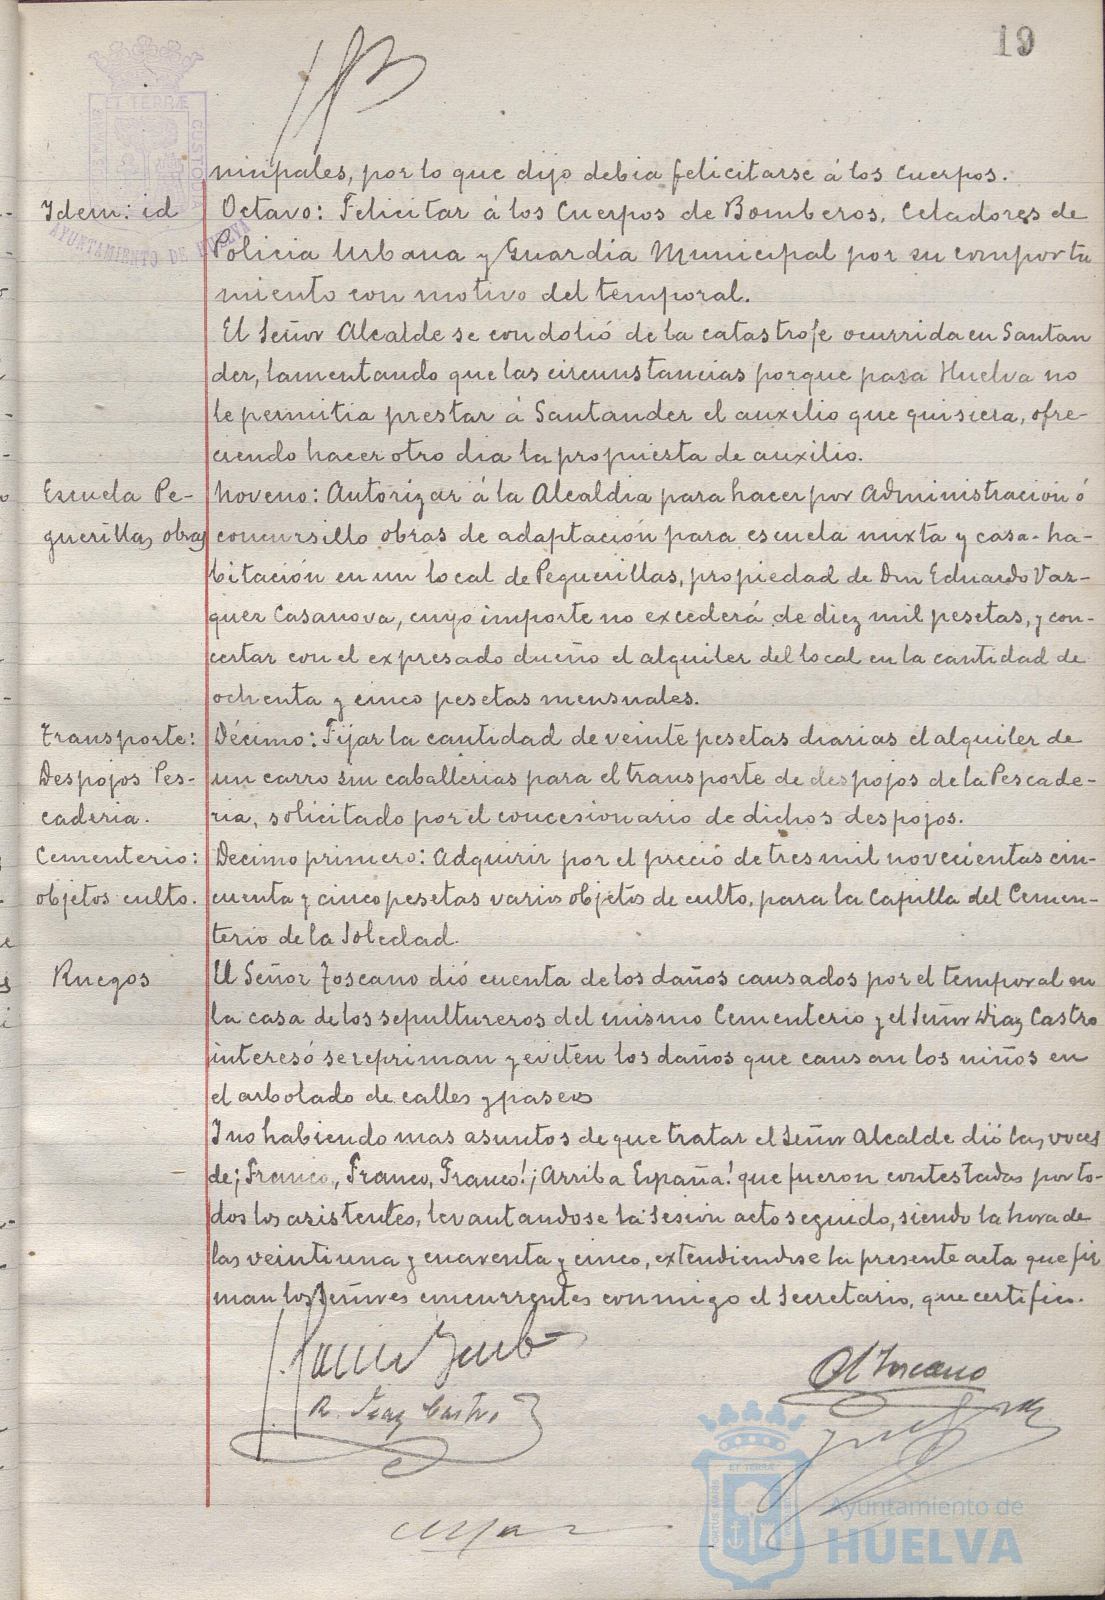 19
ninpales, por lo que dijo debia felicitarse á los cuerpos.
Idem: id
Octavo: Felicitar á los Cuerpos de Bomberos, Celadores de
Policia Urbana y Guardia Municipal por su comporta
miento con motivo del temporal.
El Señor Alcalde se condolió de la catastrofe ocurrida en Santan
der, lamentando que las circunstancias porque pasa Huelva no
le permitia prestar á Santander el auxilio que quisiera, ofre-
ciendo hacer otro dia la propuesta de auxilio.
Escuela Pe-
guerillas, obras
Noveno: Autorizar á la Alcaldia para hacer por Administración ó
concursillo obras de adaptación para escuela mixta y casa-ha-
bitación en un local de Peguerillas, propiedad de Don Eduardo Vaz-
quez Casanova, cuyo importe no excederá de diez mil pesetas, y con-
certar con el expresado dueño el alquiler del local en la cantidad de
ochenta y cinco pesetas mensuales.
Transporte:
Despojos Pes-
caderia.
Décimo: Fijar la cantidad de veinte pesetas diarias el alquiler de
un carro sin caballerias para el transporte de despojos de la Pescade-
ria, solicitado por el concesionario de dichos despojos.
Cementerio:
objetos culto.
Decimo primero: Adquirir por el precio de tres mil novecientas cin-
cuenta y cinco pesetas varios objetos de culto, para la Capilla del Cemen-
terio de la Soledad.
Ruegos
El Señor Toscano dió cuenta de los daños causados por el temporal en
la casa de los sepultureros del mismo Cementerio y el Señor Diaz Castro
interesó se repriman y eviten los daños que causan los niños en
el arbolado de calles y paseos
Y no habiendo mas asuntos de que tratar el Señor Alcalde dió las voces
de ¡Franco, Franco, Franco! ¡Arriba España! que fueron contestadas por to-
dos los asistentes, levantandose la sesión acto seguido, siendo la hora de
las veintiuna y cuarenta y cinco, extendiendose la presente acta que fir
man los Señores concurrentes conmigo el Secretario, que certifico.
R. Diaz Castro
Toscano
ET TERRÆ
CUSTODIA
AYUNTAMIENTO DE HUELVA
Ayuntamiento de
HUELVA